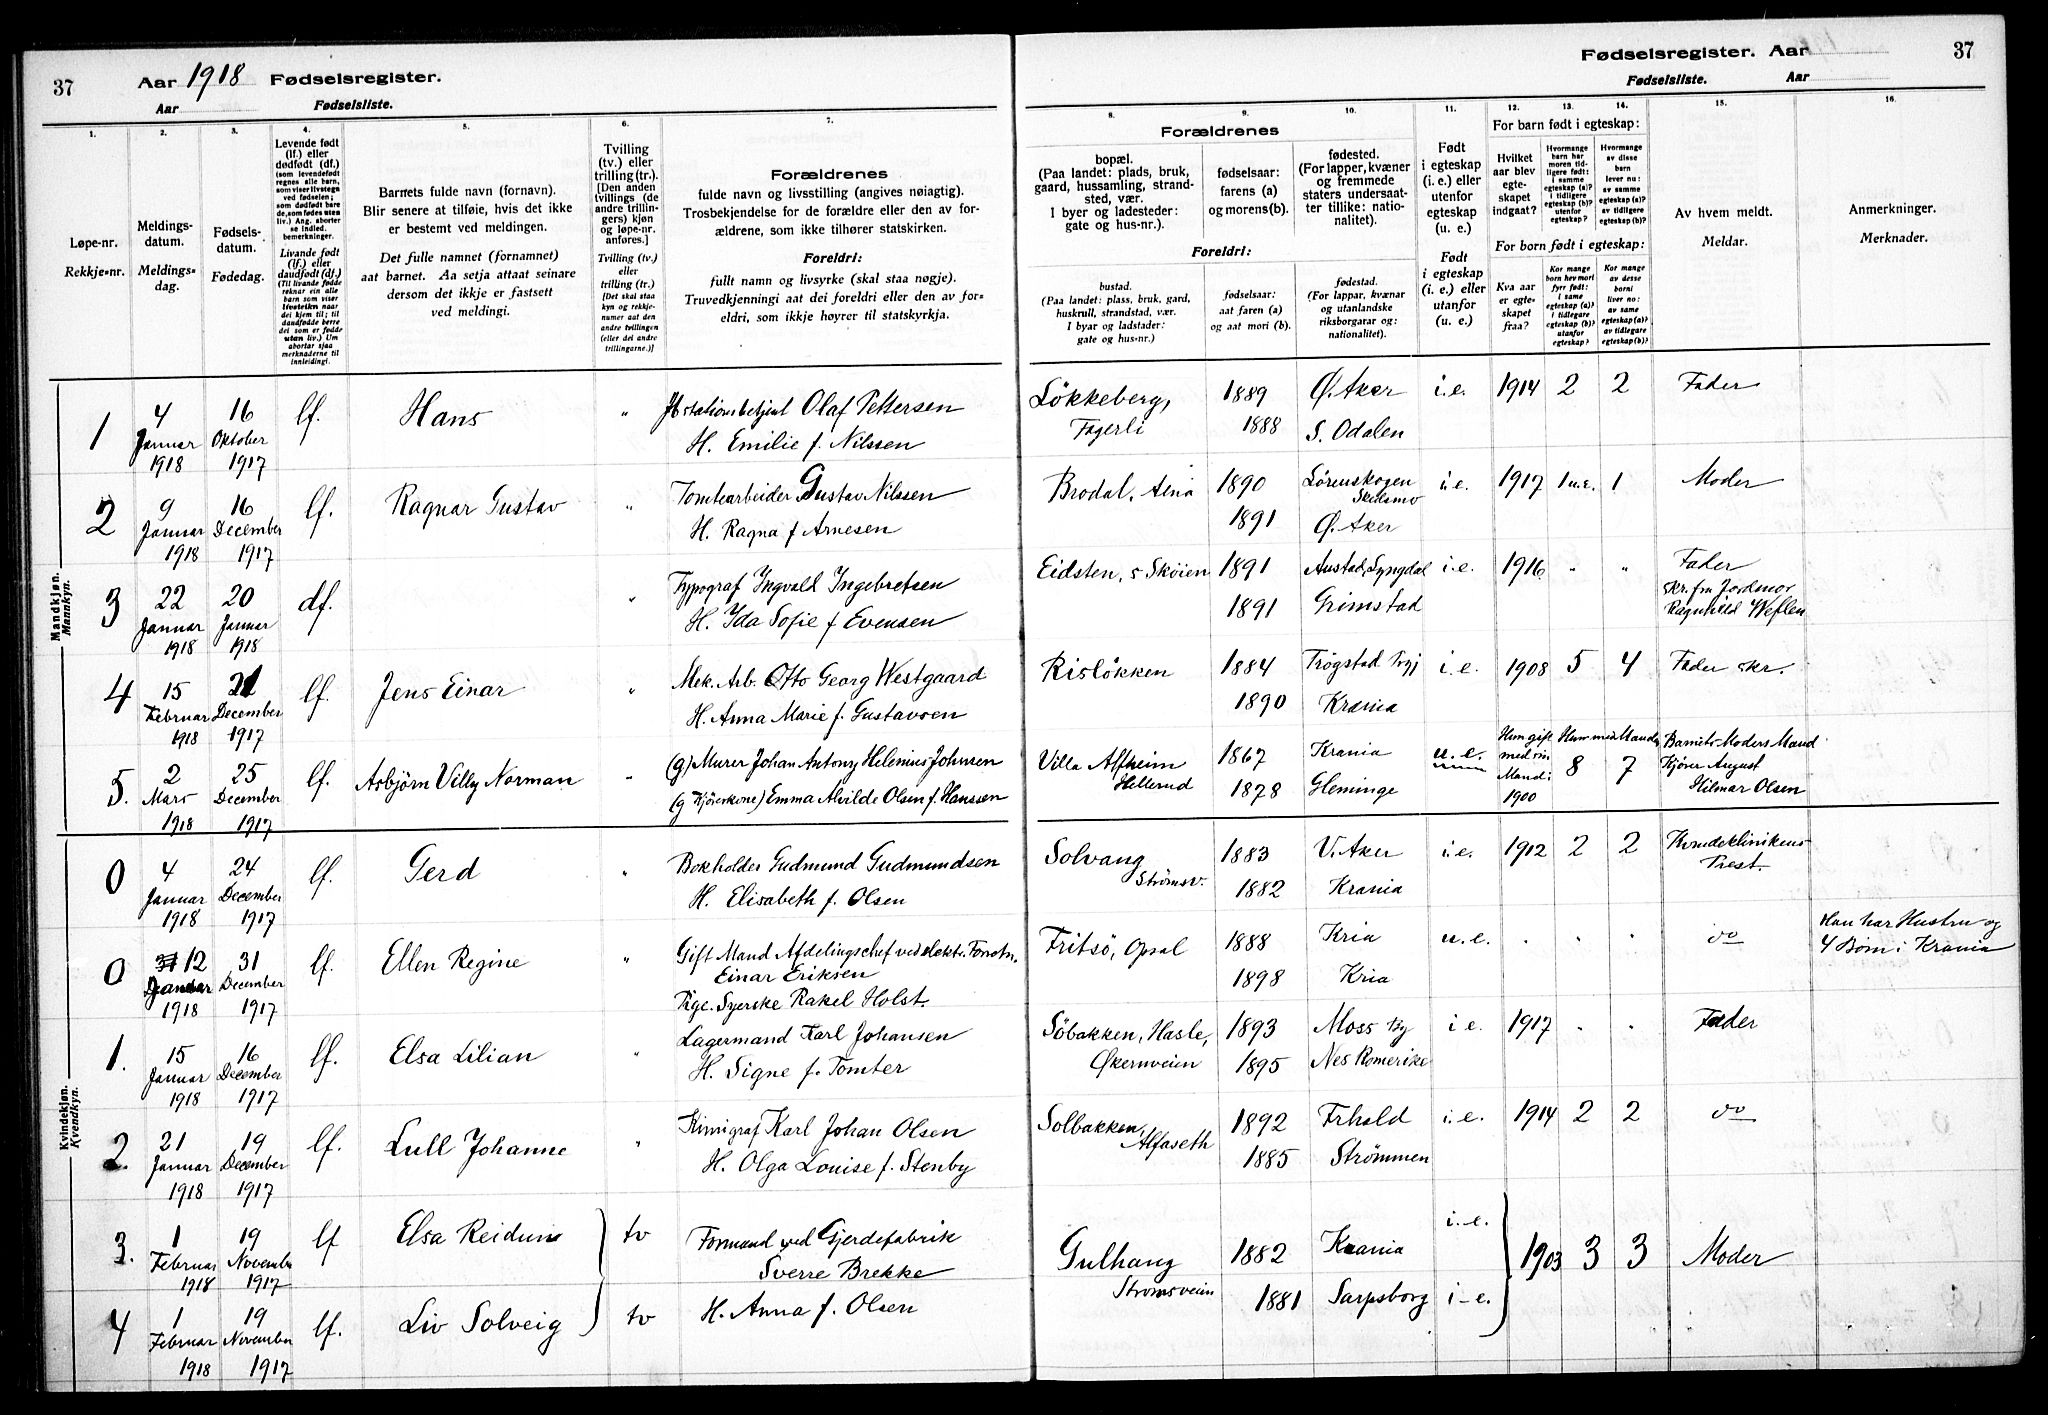 37 Aar 1918 Fødselsregister.
Aar Fødselsliste.
Fødselsregister. Aar 37
Fødselsliste. Aar
1. 2. 3. 4. 5. 6. 7. 8. 9. 10. 11. 12. 13. 14. 15. 16.
Løpe-nr.
Rekkje-nr.
Meldings-
datum.
Meldings-
dag.
Fødsels-
datum.
Fødedag.
Levende født
(lf.) eller
dødfødt (df.)
(som levendefødt
regnes alle barn,
som viser livstegn
ved fødselen;
som dødfødt bare
de, som fødes uten
liv.) Ang. aborter
se indled.
bemerkninger.
Livande født
(lf.) eller
daudfødt (df.)
(Til livande fødde
reknar ein alle
barn som viser
livsteikn naar
dei kjem til; til
daudfødde berre
dei som er fødde
utan liv.) Um
abortar sjaa
merknaderne til
innleiding.
Barnets fulde navn (fornavn).
Blir senere at tilføie, hvis det ikke
er bestemt ved meldingen.
Det fulle namnet (fornamnet)
aat barnet. Aa setja attaat seinare
dersom det ikkje er fastsett
ved meldingi.
Tvilling
(tv.) eller
trilling(tr.).
[Den anden
tvillings (de
andre trillin-
gers) kjøn
og løpe-nr.
anføres.]
Tvilling (tv.)
eller
trilling (tr.)
[Det skal staa
kyn og rekkje-
numer aat den
andre tvillingen
(eller dei andre
trillingarne.)]
Forældrenes
fulde navn og livsstilling (angives nøiagtig).
Trosbekjendelse for de forældre eller den av for-
ældrene, som ikke tilhører statskirken.
Foreldri:
fullt namn og livsyrke (skal staa nøgje).
Truvedkjenningi aat dei foreldri eller den av for-
eldri, som ikkje høyrer til statskyrkja.
Forældrenes
bopæl.
(Paa landet: plads, bruk,
gaard, hussamling, strand-
sted, vær.
I byer og ladesteder:
gate og hus-nr.).
fødselsaar:
farens (a)
og morens(b).
fødested.
(For lapper, kvæner
og fremmede
staters undersaat-
ter tillike: natio-
nalitet).
Foreldri:
bustad.
(Paa landet: plass, bruk, gard,
huskrull, strandstad, vær.
I byar og ladstader:
gate og hus-nr.)
fødselsaar:
aat faren (a)
og aat mori (b).
fødestad.
(For lappar, kvænar
og utanlandske
riksborgarar og:
nationalitet).
Født
i egteskap
(i. e.) eller
utenfor
egteskap
(u. e.)
Født
i egteskap
(i. e.) eller
utanfor
(u. e.)
For barn født i egteskap:
Hvilket
aar blev
egte-
skapet
indgaat?
Hvormange
barn har
moren tid-
ligere født:
i samme
egteskap (a)?
i tidligere
egteskap (b)?
utenfor
egteskap?
Hvormange
av disse
barn
lever nu:
av samme
egteskap (a)?
av tidligere
egteskap (b)?
For born født i egteskap:
Kva aar
er egte-
skapet
fraa?
Kor mange
born hev mori
fyrr født:
i same
egteskap (a)?
i tidlegare
egteskap (b)?
utanfor
egteskap?
Kor mange
av desse
borni
liver no:
av same
egteskap (a)?
av tidlegare
egteskap (b)?
Av hvem meldt.
Meldar.
Anmerkninger.
Merknader.
Mandkjøn.
Mannkyn.
1 4 Januar 1918 16 Oktober 1917 lf. Hans " Jbstationsbetjent Olaf Pettersen
H. Emilie f. Nilssen
Løkkeberg, Fagerli 1889 1888 Ø. Aker S. Odalen i.e. 1914 2 2 Fader
2 9 Januar 1918 16 December 1917 lf. Ragnar Gustav " Tomtearbeider Gustav Nilssen
H. Ragna f Arnesen
Brodal, Alna 1890 1891 Lørenskogen Skedsmo Ø. Aker i.e. 1917 1 u.e. 1 Moder
3 22 Januar 1918 20 Januar 1918 df. " Typograf Ingvald Ingebretsen
H. Ida Sofie f Evensen
Eidsten, S Skøien 1891 1891 Austad, Lyngdal Grimstad i.e. 1916 " " Fader
skr. fra Jordmor
Ragnhild Weflen
4 15 Februar 1918 21 December 1917 lf. Jens Einar " Mek. Arb. Otto Georg Westgaard
H. Anna Marie f. Gustavsen
Risløkken 1884 1890 Trøgstad Krania i.e. 1908 5 4 Fader skr.
5. 2 Mars 1918 25 December 1917 lf. Asbjørn Villy Norman " (g) Murer Johan Antony Helenius Johnsen
(g Kjørerkone) Emma Alvilde Olsen f. Hanssen
Villa Alfheim Hellerud 1867 1878 Krania Gleminge u.e. Hun gift
med sin
Mand:
1900 Hun med Manden 8 7 Barnets Moders Mand
Kjører August
Hilmar Olsen
Kvindekjøn.
Kvendkyn.
0 4 Januar 1918 24 December 1917 lf. Gerd " Bokholder Gudmund Gudmundsen
H. Elisabeth f. Olsen
Solvang Strømsv. 1883 1882 V. Aker Krania i.e. 1912 2 2 Kvindeklinikens
Prest.
0 12 Januar 1918 31 December 1917 lf. Ellen Regine " Gift Mand Afdelingschef ved elektr. Forretn.
Einar Eriksen
Pige. Syerske Rakel Holst.
Fritsø, Opsal 1888 1898 Kria Kria u.e. " " " do Han har Hustru og
4 Børn i Krania
1. 15 Januar 1918 16 December 1917 lf. Elsa Lilian " Lagermand Karl Johansen
H. Signe f. Tomter
Søbakken, Hasle, Økernveien 1893 1895 Moss By Nes Romerike i e. 1917 " " Fader
2. 21 Januar 1918 19 December 1917 lf. Lull Johanne " Kimigraf Karl Johan Olsen
H. Olga Louise f. Stenby
Solbakken, Alfaseth 1892 1885 Frhald Strømmen i.e. 1914 2 2 do
3. 1 Februar 1918 19 November 1917 lf Elsa Reidun tv Formand ved Gjerdefabrik
Sverre Brekke
Gulhaug Strømsveien 1882 1881 Krania Sarpsborg i.e. i-e. 1903 3 3 Moder
4 1 Februar 1918 19 November 1917 lf. Liv Solveig tv H. Anna f. Olsen